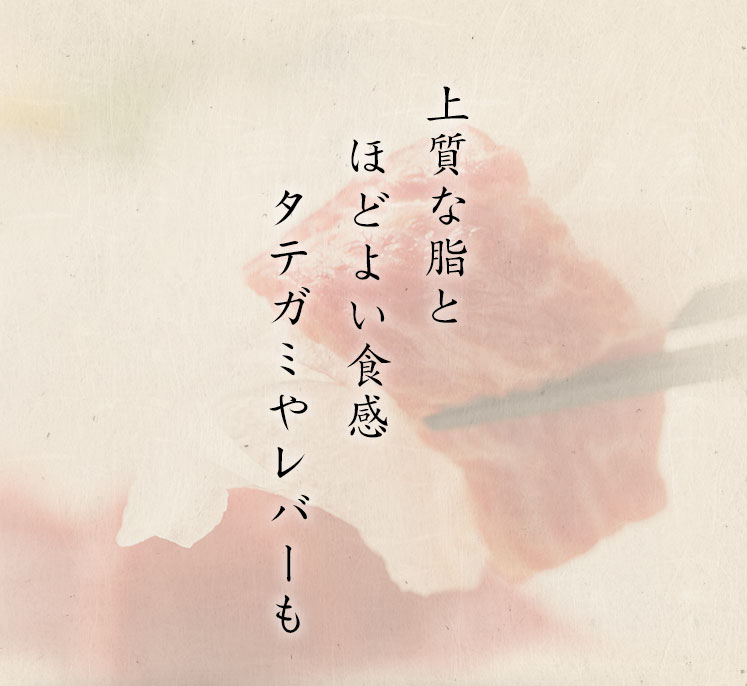 上質な脂と
ほどよい食感
タテガミやレバーも